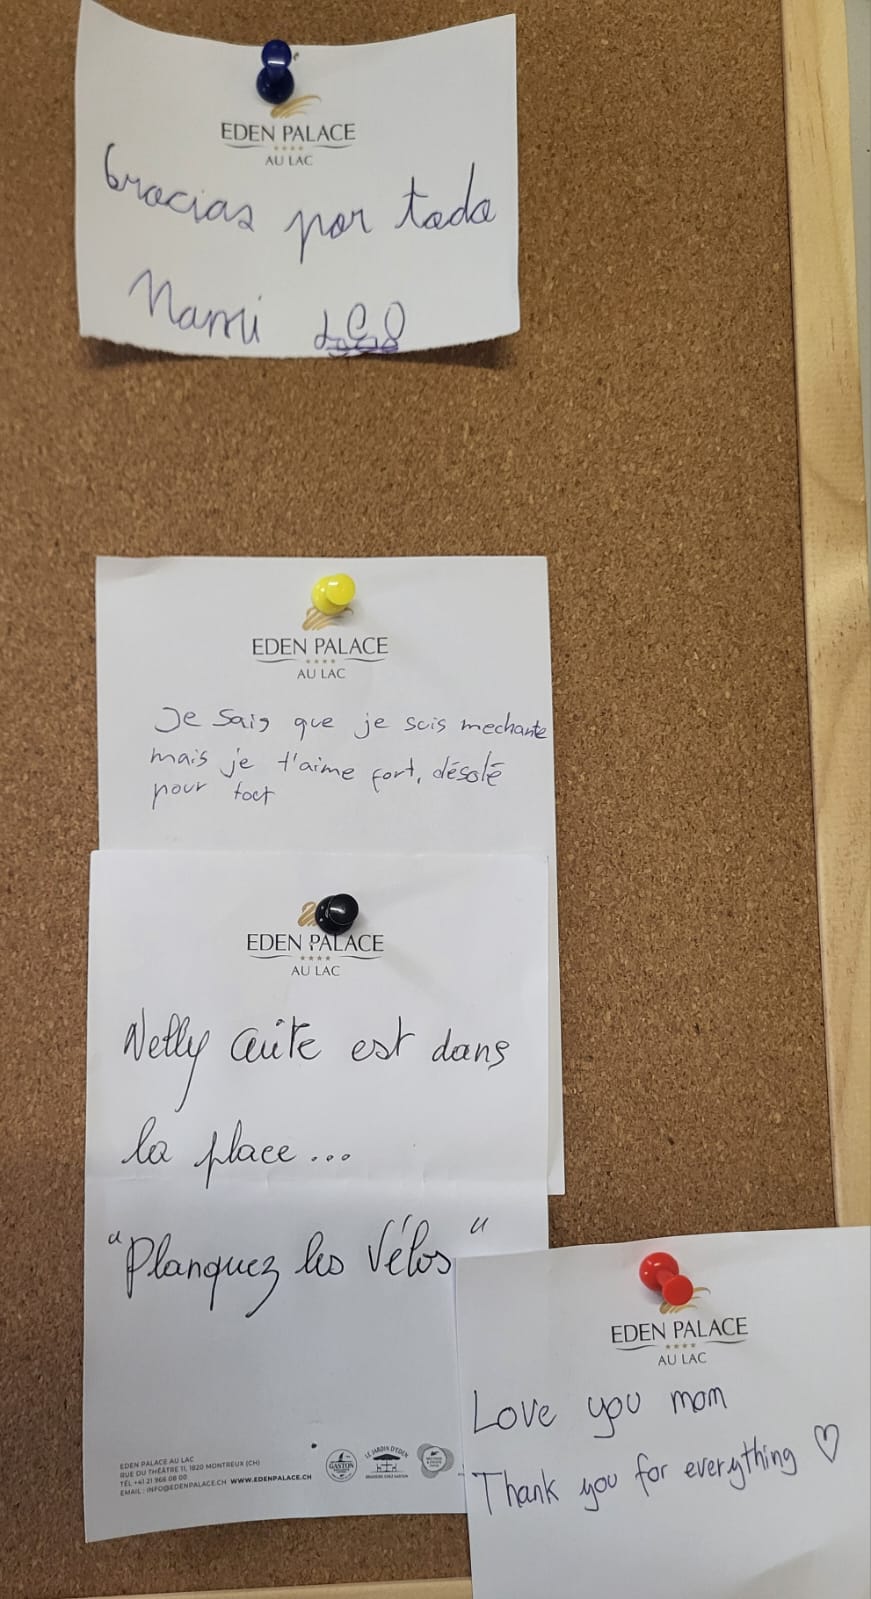 EDEN PALACE
AU LAC
Gracias por todo
Mami
EDEN PALACE
AU LAC
Je sais que je suis mechante
mais je t'aime fort, désolé
pour tout
EDEN PALACE
AU LAC
Nelly est dans
la place...
"Planquez les Vélos"
EDEN PALACE AU LAC
RUE DU THÉÂTRE 11, 1820 MONTREUX (CH)
TÉL +41 21 966 08 00
EMAIL : INFO@EDENPALACE.CH WWW.EDENPALACE.CH
GASTON
LE JARDIN D'EDEN
EDEN PALACE
AU LAC
Love you mom
Thank you for everything